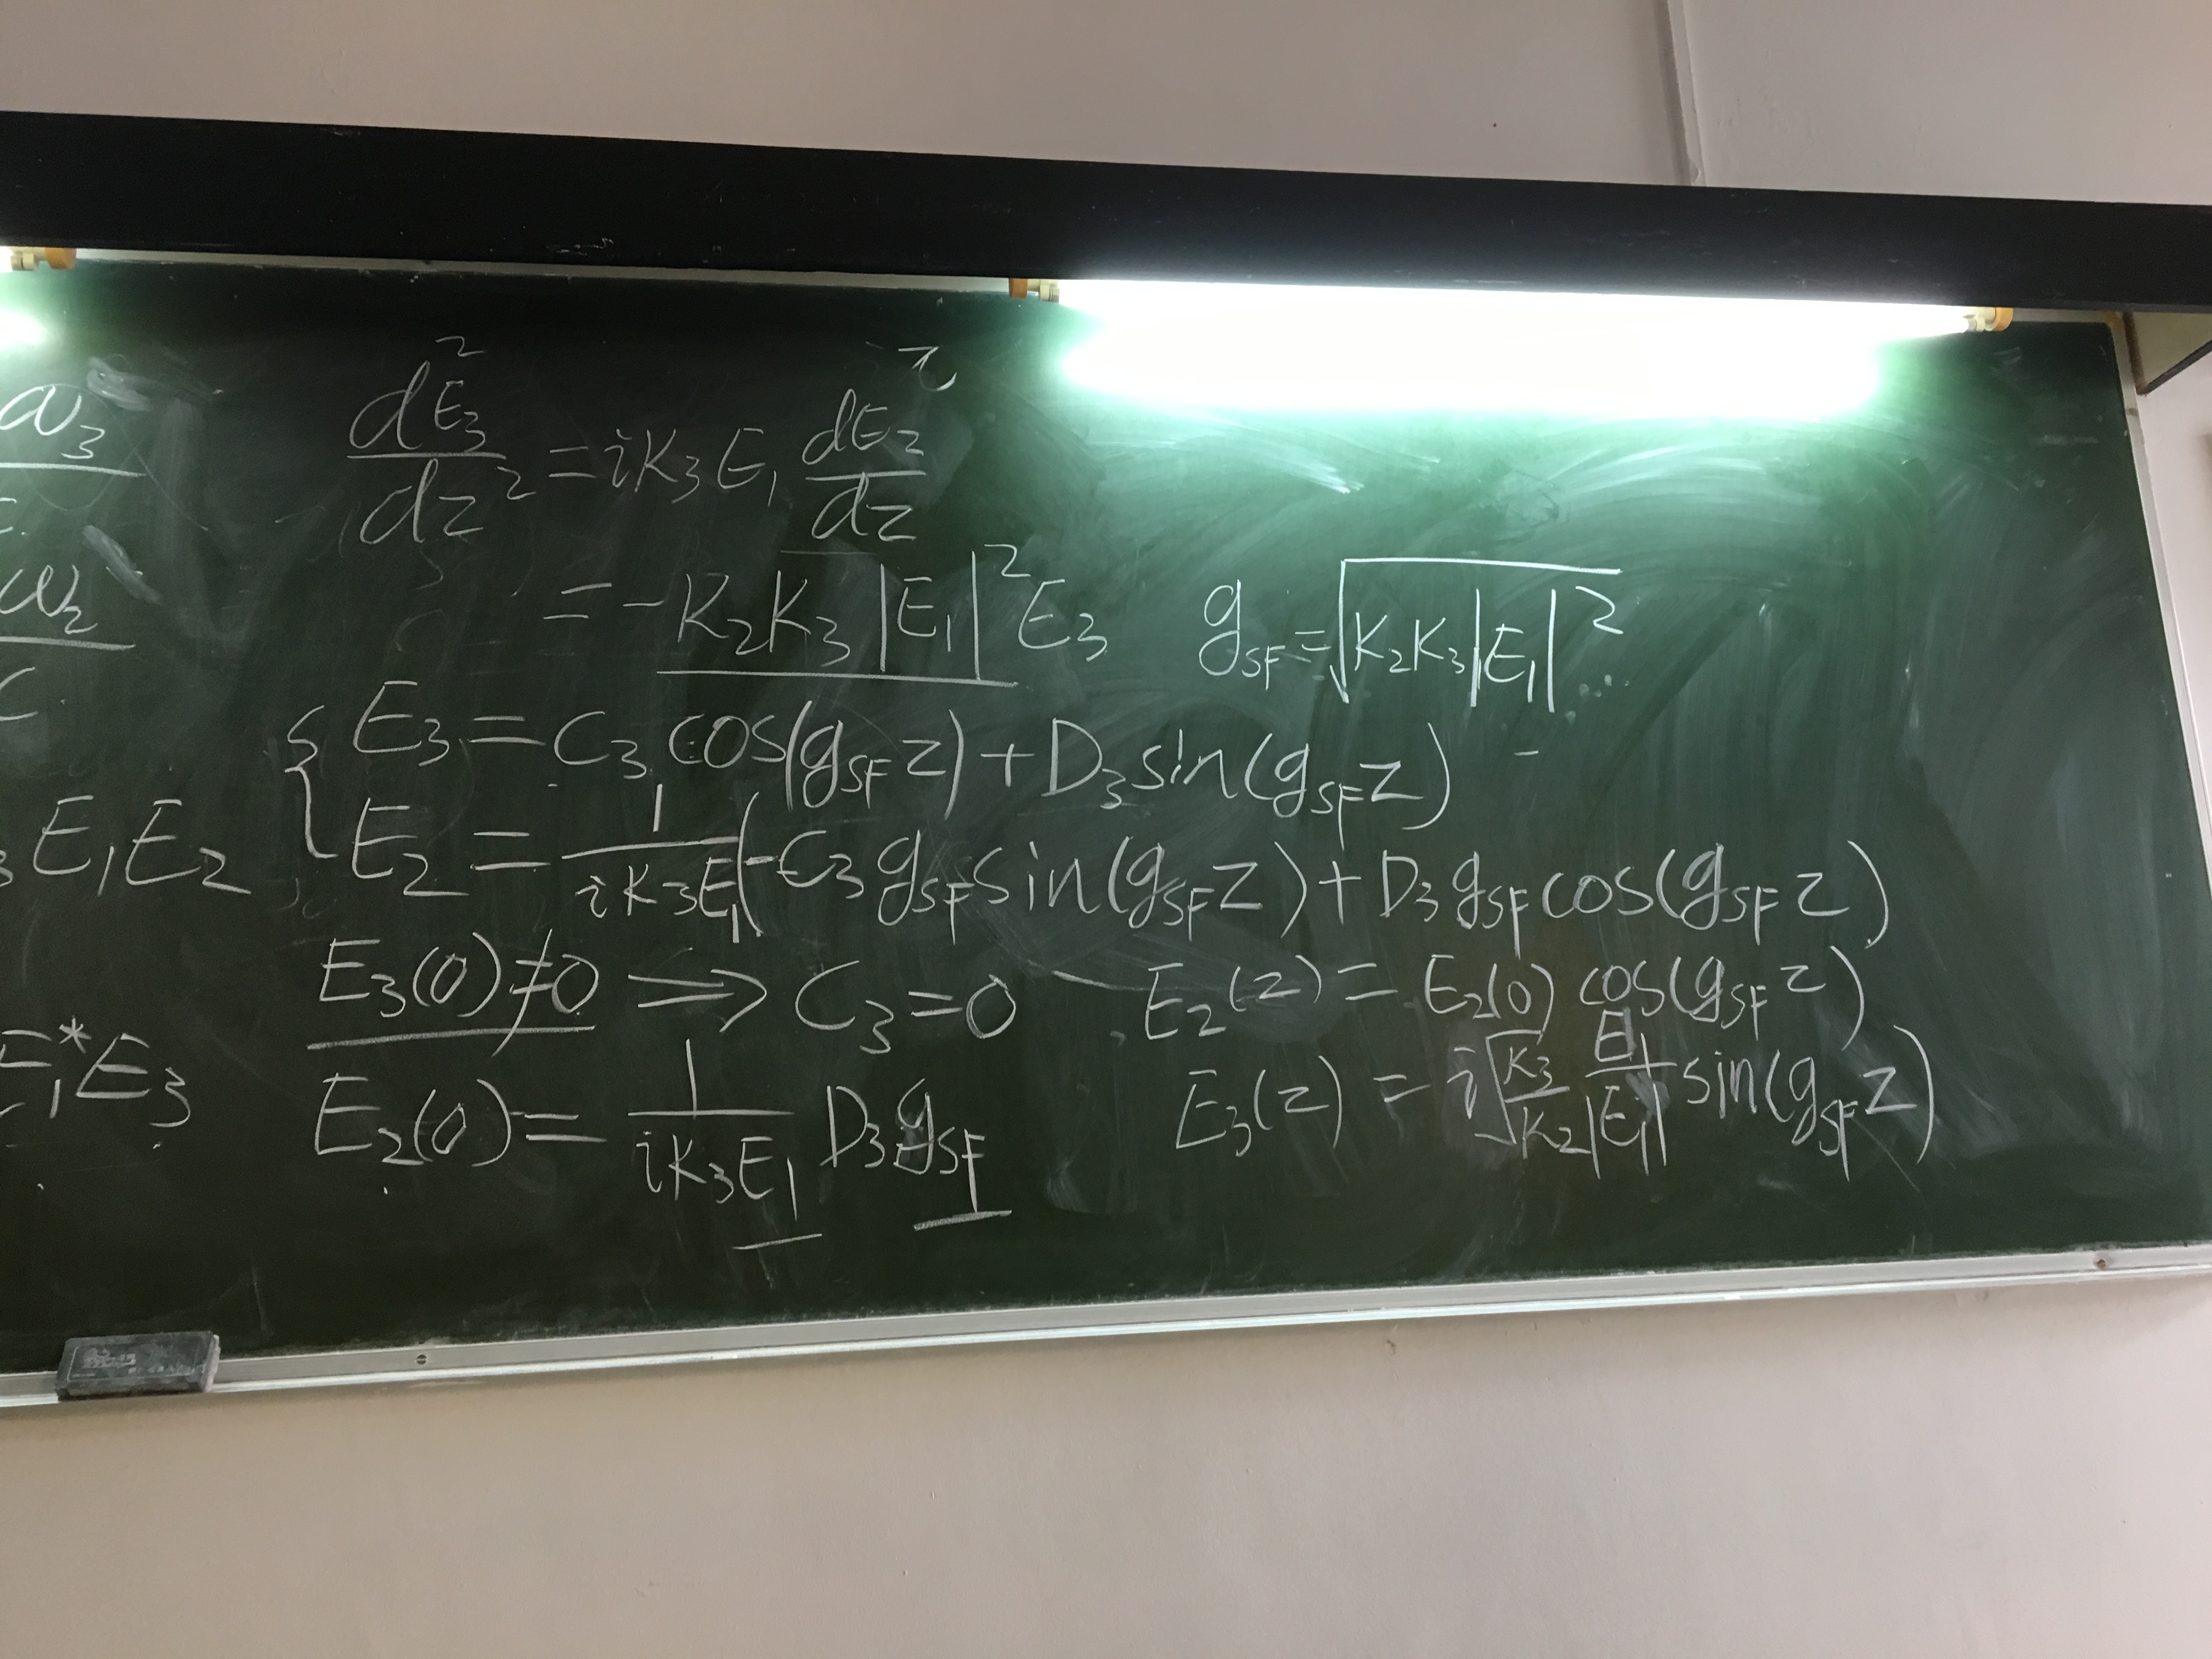 ω₃
d²E₃/dz² = iK₃E₁ dE₂/dz
= -K₂K₃|E₁|²E₃ g_SF = √(K₂K₃|E₁|²)
ω₂
C
{ E₃ = C₃cos(g_SF z) + D₃sin(g_SF z)
E₁E₂ E₂ = 1/(iK₃E₁) (-C₃g_SF sin(g_SF z) + D₃g_SF cos(g_SF z)
E₃(0)≠0 ⇒ C₃=0 E₂(z) = E₂(0) cos(g_SF z)
E₁*E₃ E₂(0) = 1/(iK₃E₁) D₃g_SF E₃(z) = i√(K₃/K₂) E₁/|E₁| sin(g_SF z)